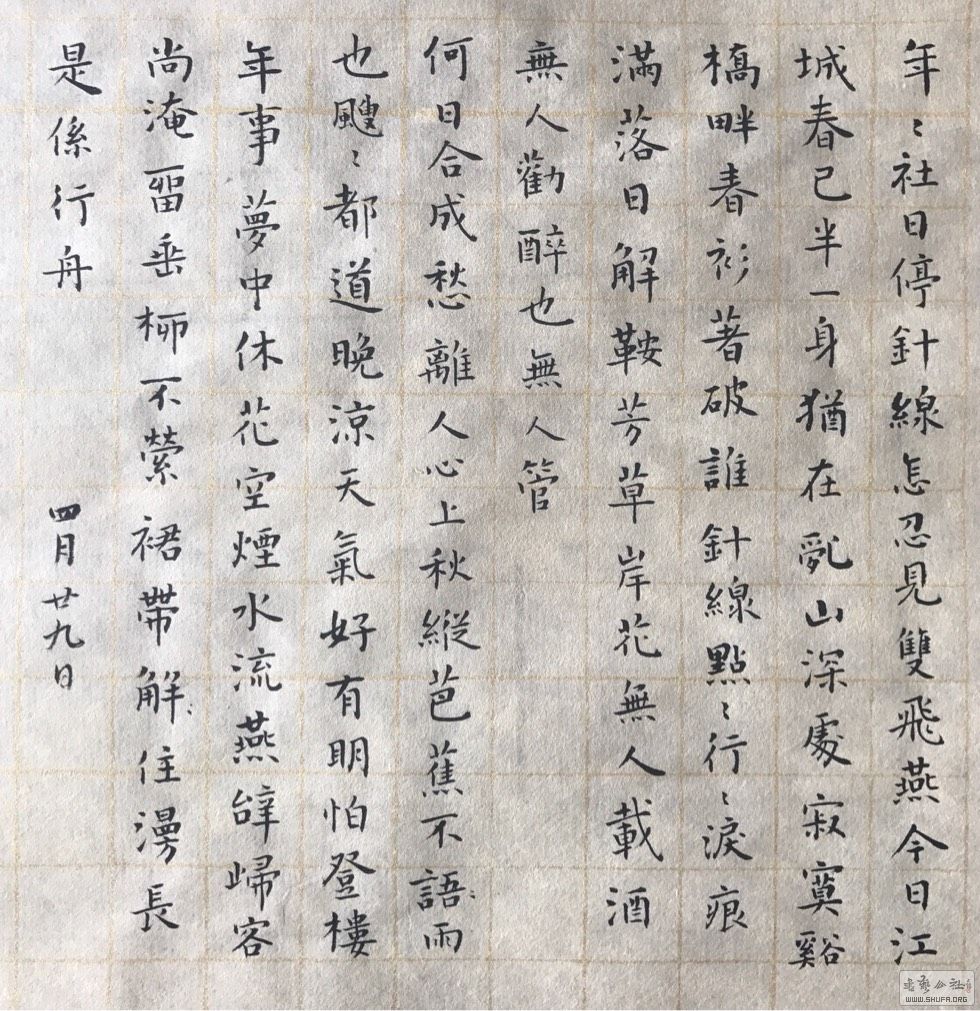 年〻社日停針線怎忍見雙飛燕今日江
城春已半一身猶在亂山深處寂寞谿
橋畔春衫著破誰針線點〻行〻淚痕
滿落日解鞍芳草岸花無人載酒
無人勸醉也無人管
何日合成愁離人心上秋縱芭蕉不語雨
也颼〻都道晚涼天氣好有明怕登樓
年事夢中休花空煙水流燕辝歸客
尚淹留垂柳不縈裙帶解住漫長
是係行舟
四月廿九日
書藝公社
WWW.SHUFA.ORG